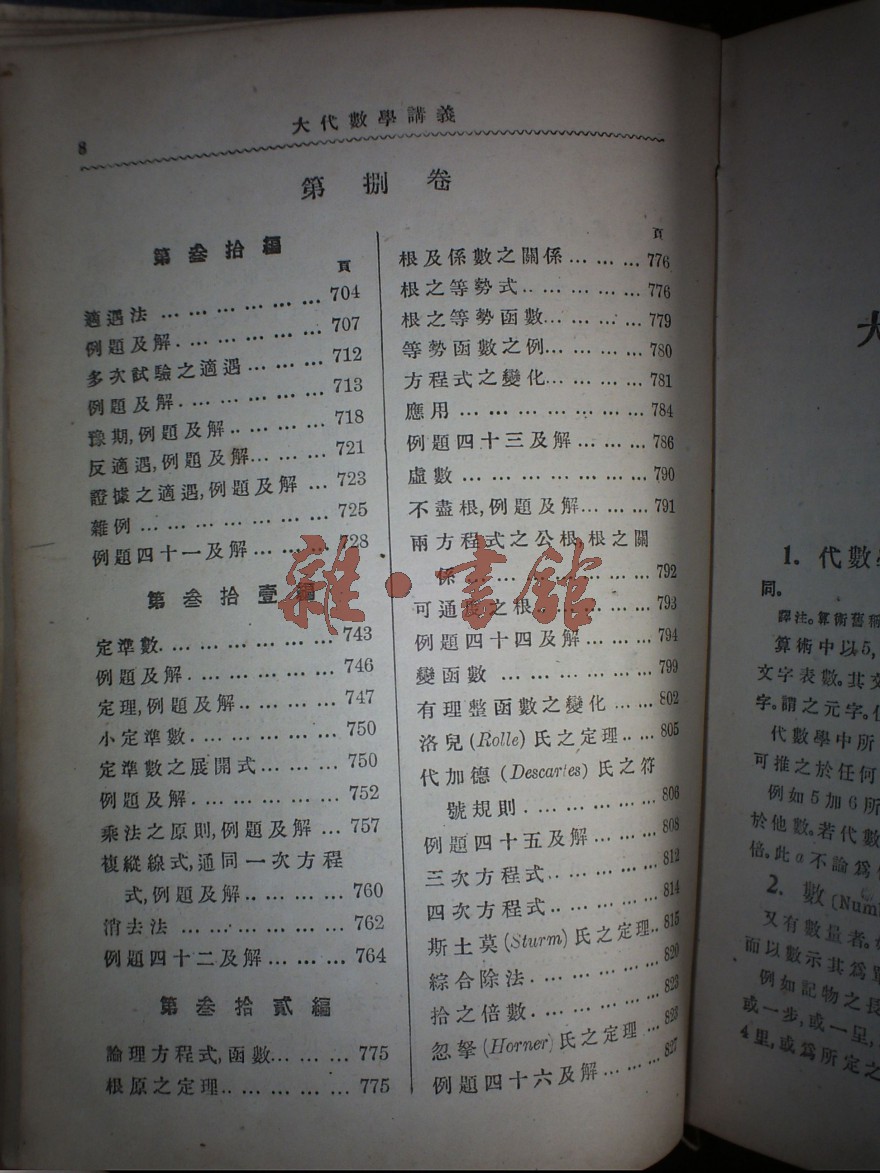 8
大代數學講義
第捌卷
第叁拾編
頁
適遇法 … … … … … … … 704
例題及解. … … … … … … 707
多次試驗之適遇 … … … … 712
例題及解. … … … … … … 713
豫期,例題及解.. … … … … 718
反適遇,例題及解… … … … 721
證據之適遇,例題及解 … 723
雜例 … … … … … … … … 725
例題四十一及解 … … … … 728
第叁拾壹編
定準數. … … … … … … … 743
例題及解. … … … … … … 746
定理,例題及解.. … … … … 747
小定準數. … … … … … … 750
定準數之展開式 … … … … 750
例題及解. … … … … … … 752
乘法之原則,例題及解 … 757
複縱線式,通同一次方程
式,例題及解.. … … … … 760
消去法 … … … … … … … 762
例題四十二及解 … … … … 764
第叁拾貳編
論理方程式,函數… … … … 775
根原之定理.. … … … … … 775
頁
根及係數之關係 … … … … 776
根之等勢式 .. … … … … … 776
根之等勢函數… … … … … 779
等勢函數之例… … … … … 780
方程式之變化… … … … … 781
應用 … … … … … … … … 784
例題四十三及解 … … … … 786
虛數 … … … … … … … … 790
不盡根,例題及解… … … … 791
兩方程式之公根,根之關
係 … … … … … … … … 792
可通度之根.. … … … … … 793
例題四十四及解 … … … … 794
變函數 … … … … … … … 799
有理整函數之變化 … … … 802
洛兒(Rolle)氏之定理 .. … 805
代加德(Descartes)氏之符
號規則 . … … … … … … 806
例題四十五及解 … … … … 808
三次方程式.. … … … … … 812
四次方程式.. … … … … … 814
斯土莫(Sturm)氏之定理.. 815
綜合除法 . … … … … … … 820
拾之倍數. … … … … … … 823
忽拏(Horner)氏之定理 … 823
例題四十六及解… … … … 827
雜·書館
大
1. 代數
同。
譯注。算術舊稱
算術中以5,
文字表數。其文
字。謂之元字。
代數學中所
可推之於任何
例如5加6所
於他數。若代數
倍。此a不論爲
2. 數(Num
又有數量者。
而以數示其爲單
例如記物之長
或一步,或一呈,
4里,或爲所定之